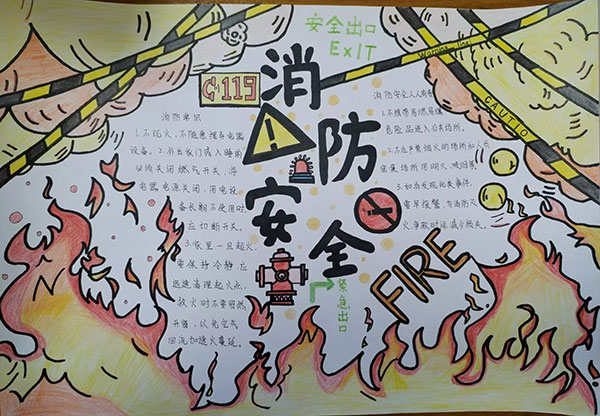 安全出口
EXIT
Warning line!
CAUTIO
C·119
消防安全
消防常识
1.不玩火、不随意摆弄电器
设备。2.外出家门或入睡前
必须关闭燃气开关、将
电器电源关闭,用电设
备长期不使用时
应切断开关。
3.家里一旦起火,
要保持冷静,应
迅速清理起火点,
救火时不要贸然
开窗,以免空气
回流加速火蔓延。
消防安全人人有
1.不携带易燃易爆
危险品进入公共场所。
2.不在严禁烟火的场所和人员
密集场所用明火、吸烟等
3.如有发现此类事件,
要早报警,为消防灭
火争取时间,减少损失。
FIRE
紧急出口